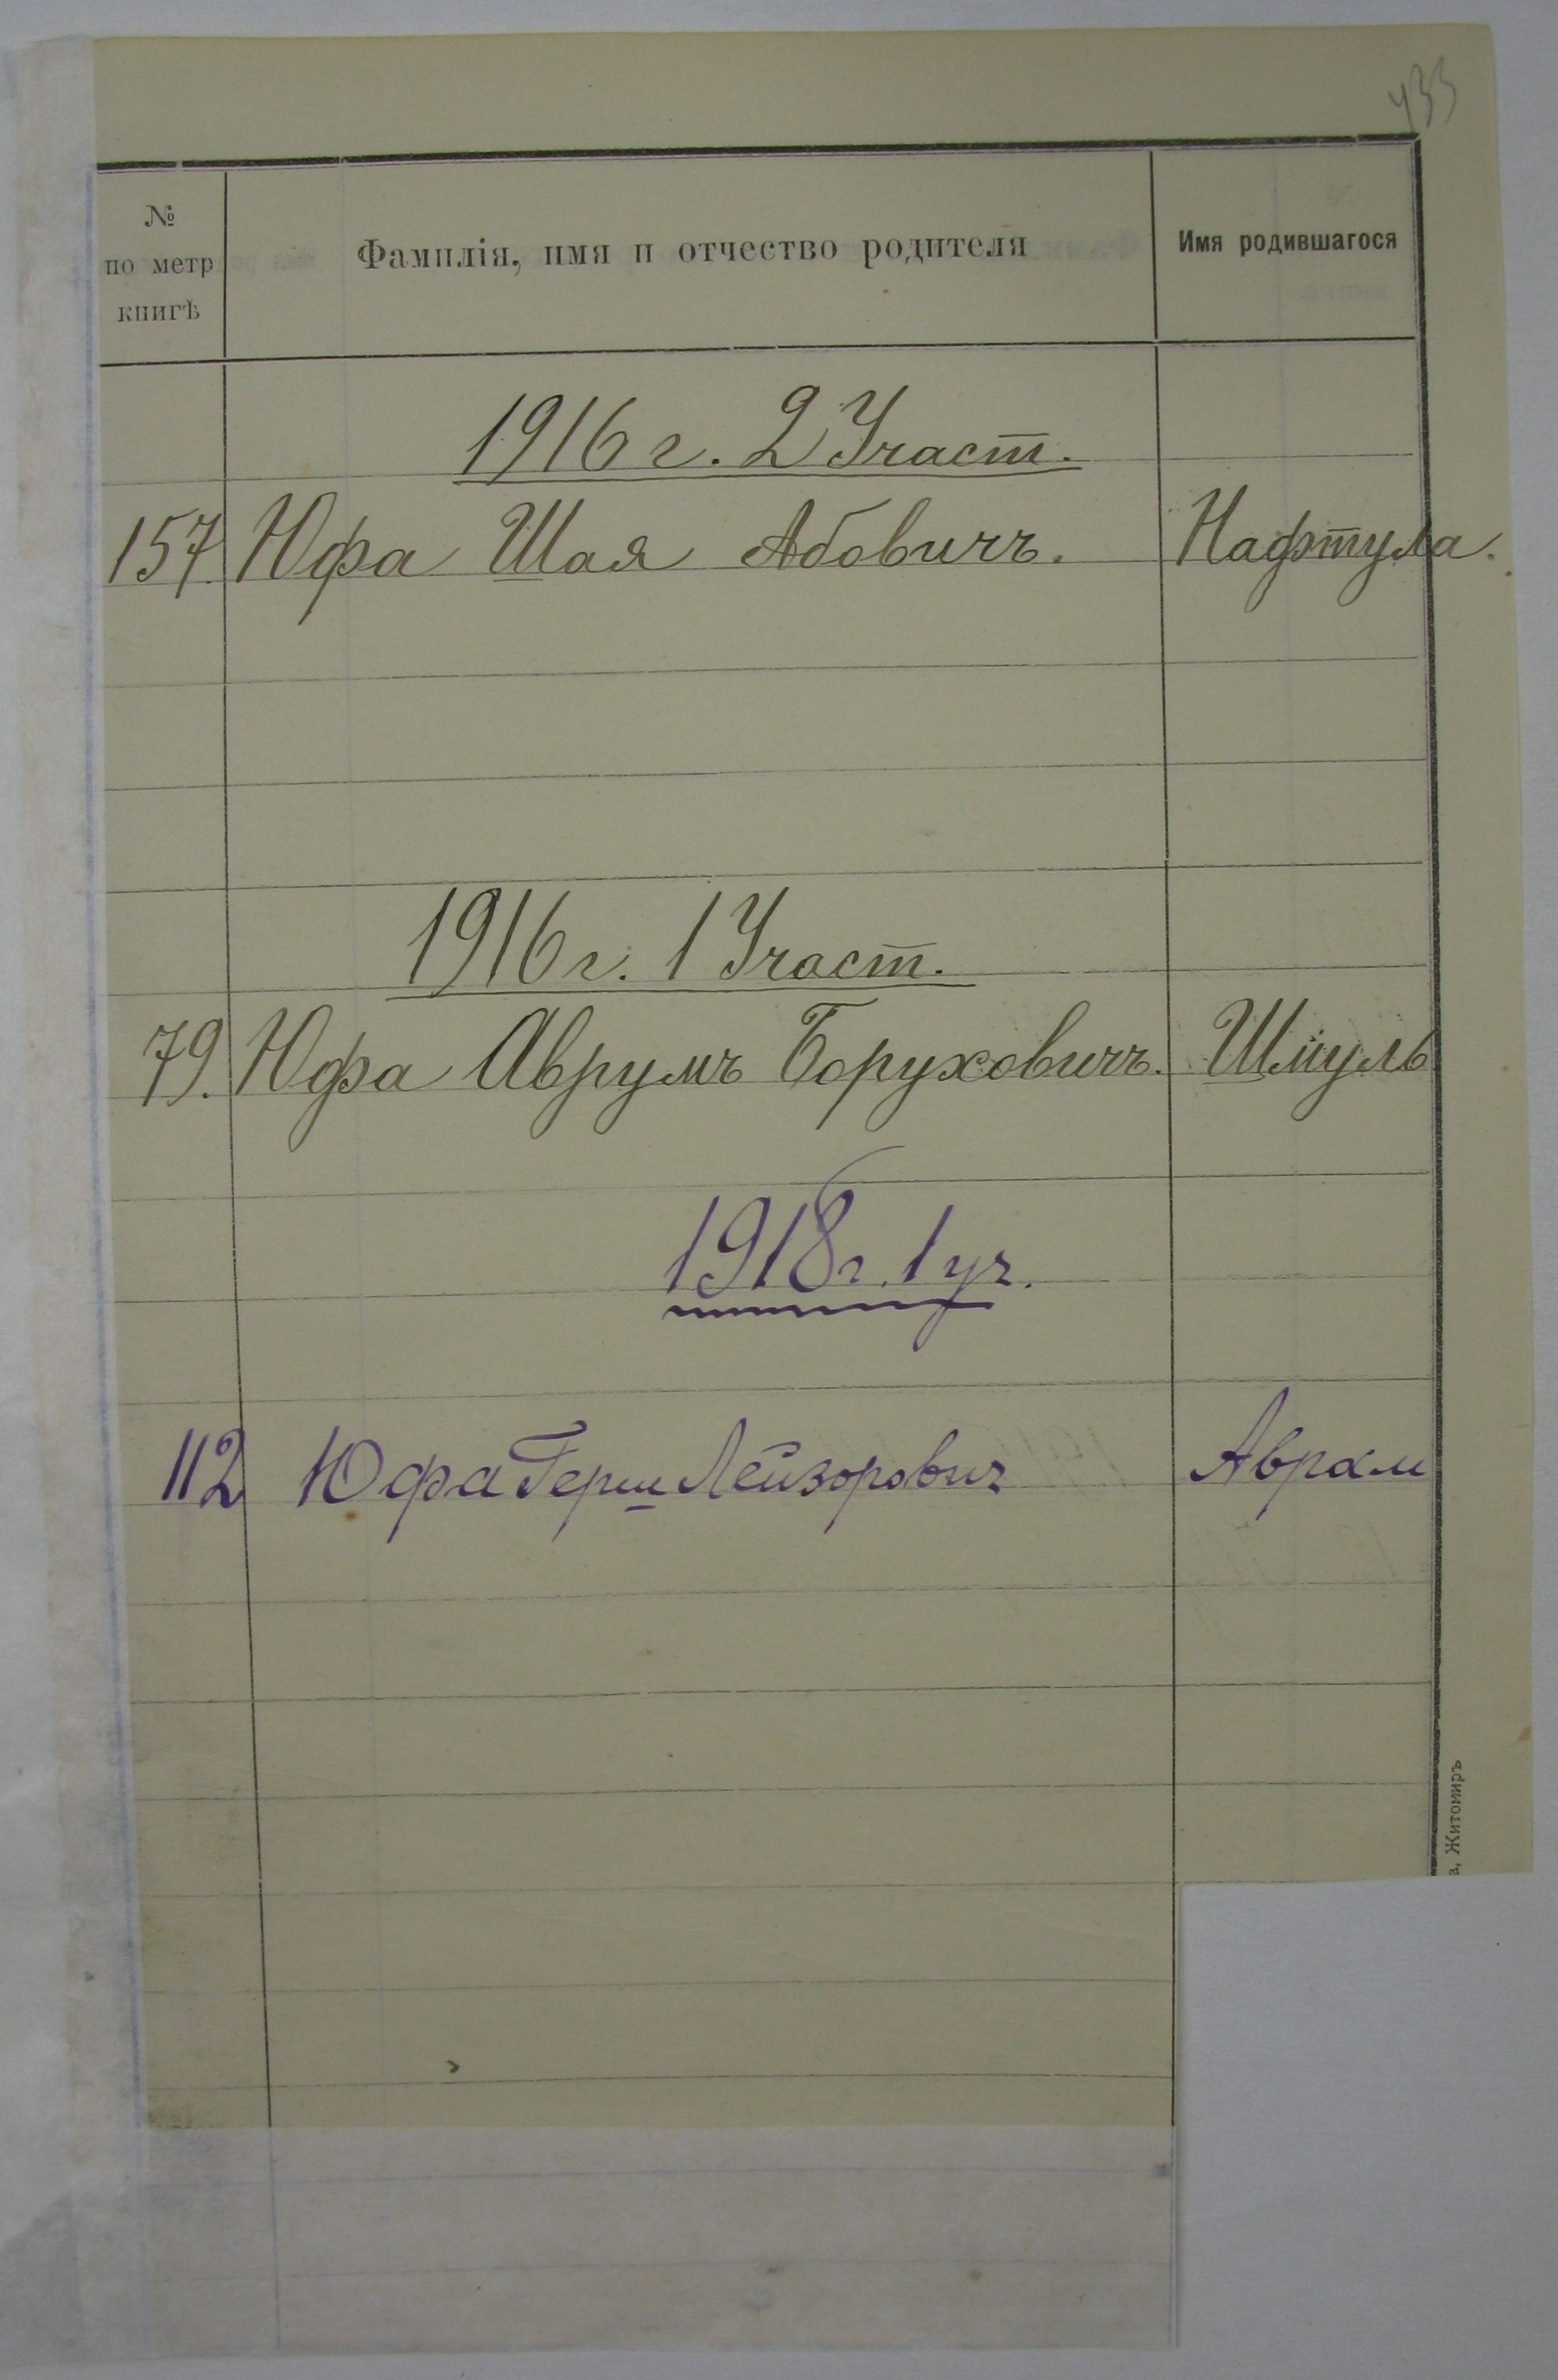 433
№
по метр
книгѣ
Фамилія, имя и отчество родителя
Имя родившагося
1916 г. 2 Участ.
157. Юфа Шая Абовичъ. Нафтула.
1916 г. 1 Участ.
79. Юфа Аврумъ Боруховичъ. Шмуль
1918 г. 1 уч.
112 Юфа Герш Лейзорович Аврам
а, Житомиръ